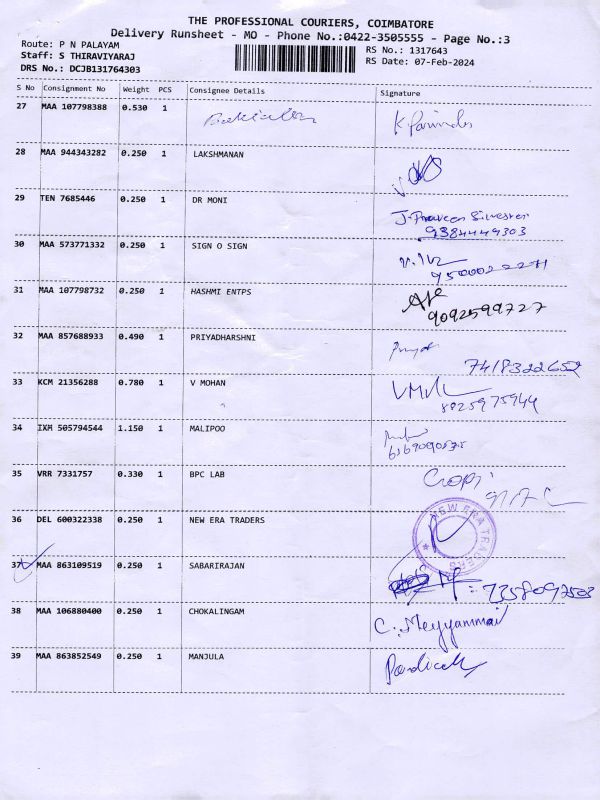 THE PROFESSIONAL COURIERS, COIMBATORE
Delivery Runsheet - MO - Phone No.:0422-3505555 - Page No.:3
Route: P N PALAYAM
Staff: S THIRAVIYARAJ
DRS No.: DCJB131764303
RS No.: 1317643
RS Date: 07-Feb-2024
S No Consignment No Weight PCS Consignee Details Signature
27 MAA 107798388 0.530 1
28 MAA 944343282 0.250 1 LAKSHMANAN
29 TEN 7685446 0.250 1 DR MONI J. Praveen Silvester
9384449303
30 MAA 573771332 0.250 1 SIGN O SIGN
31 MAA 107798732 0.250 1 HASHMI ENTPS
9092599727
32 MAA 857688933 0.490 1 PRIYADHARSHNI
7418322652
33 KCM 21356288 0.780 1 V MOHAN
8825975944
34 IXM 505794544 1.150 1 MALIPOO
35 VRR 7331757 0.330 1 BPC LAB Gopi
36 DEL 600322338 0.250 1 NEW ERA TRADERS NEW ERA TRADERS
37 MAA 863109519 0.250 1 SABARIRAJAN
38 MAA 106880400 0.250 1 CHOKALINGAM C. Meyyammai
39 MAA 863852549 0.250 1 MANJULA